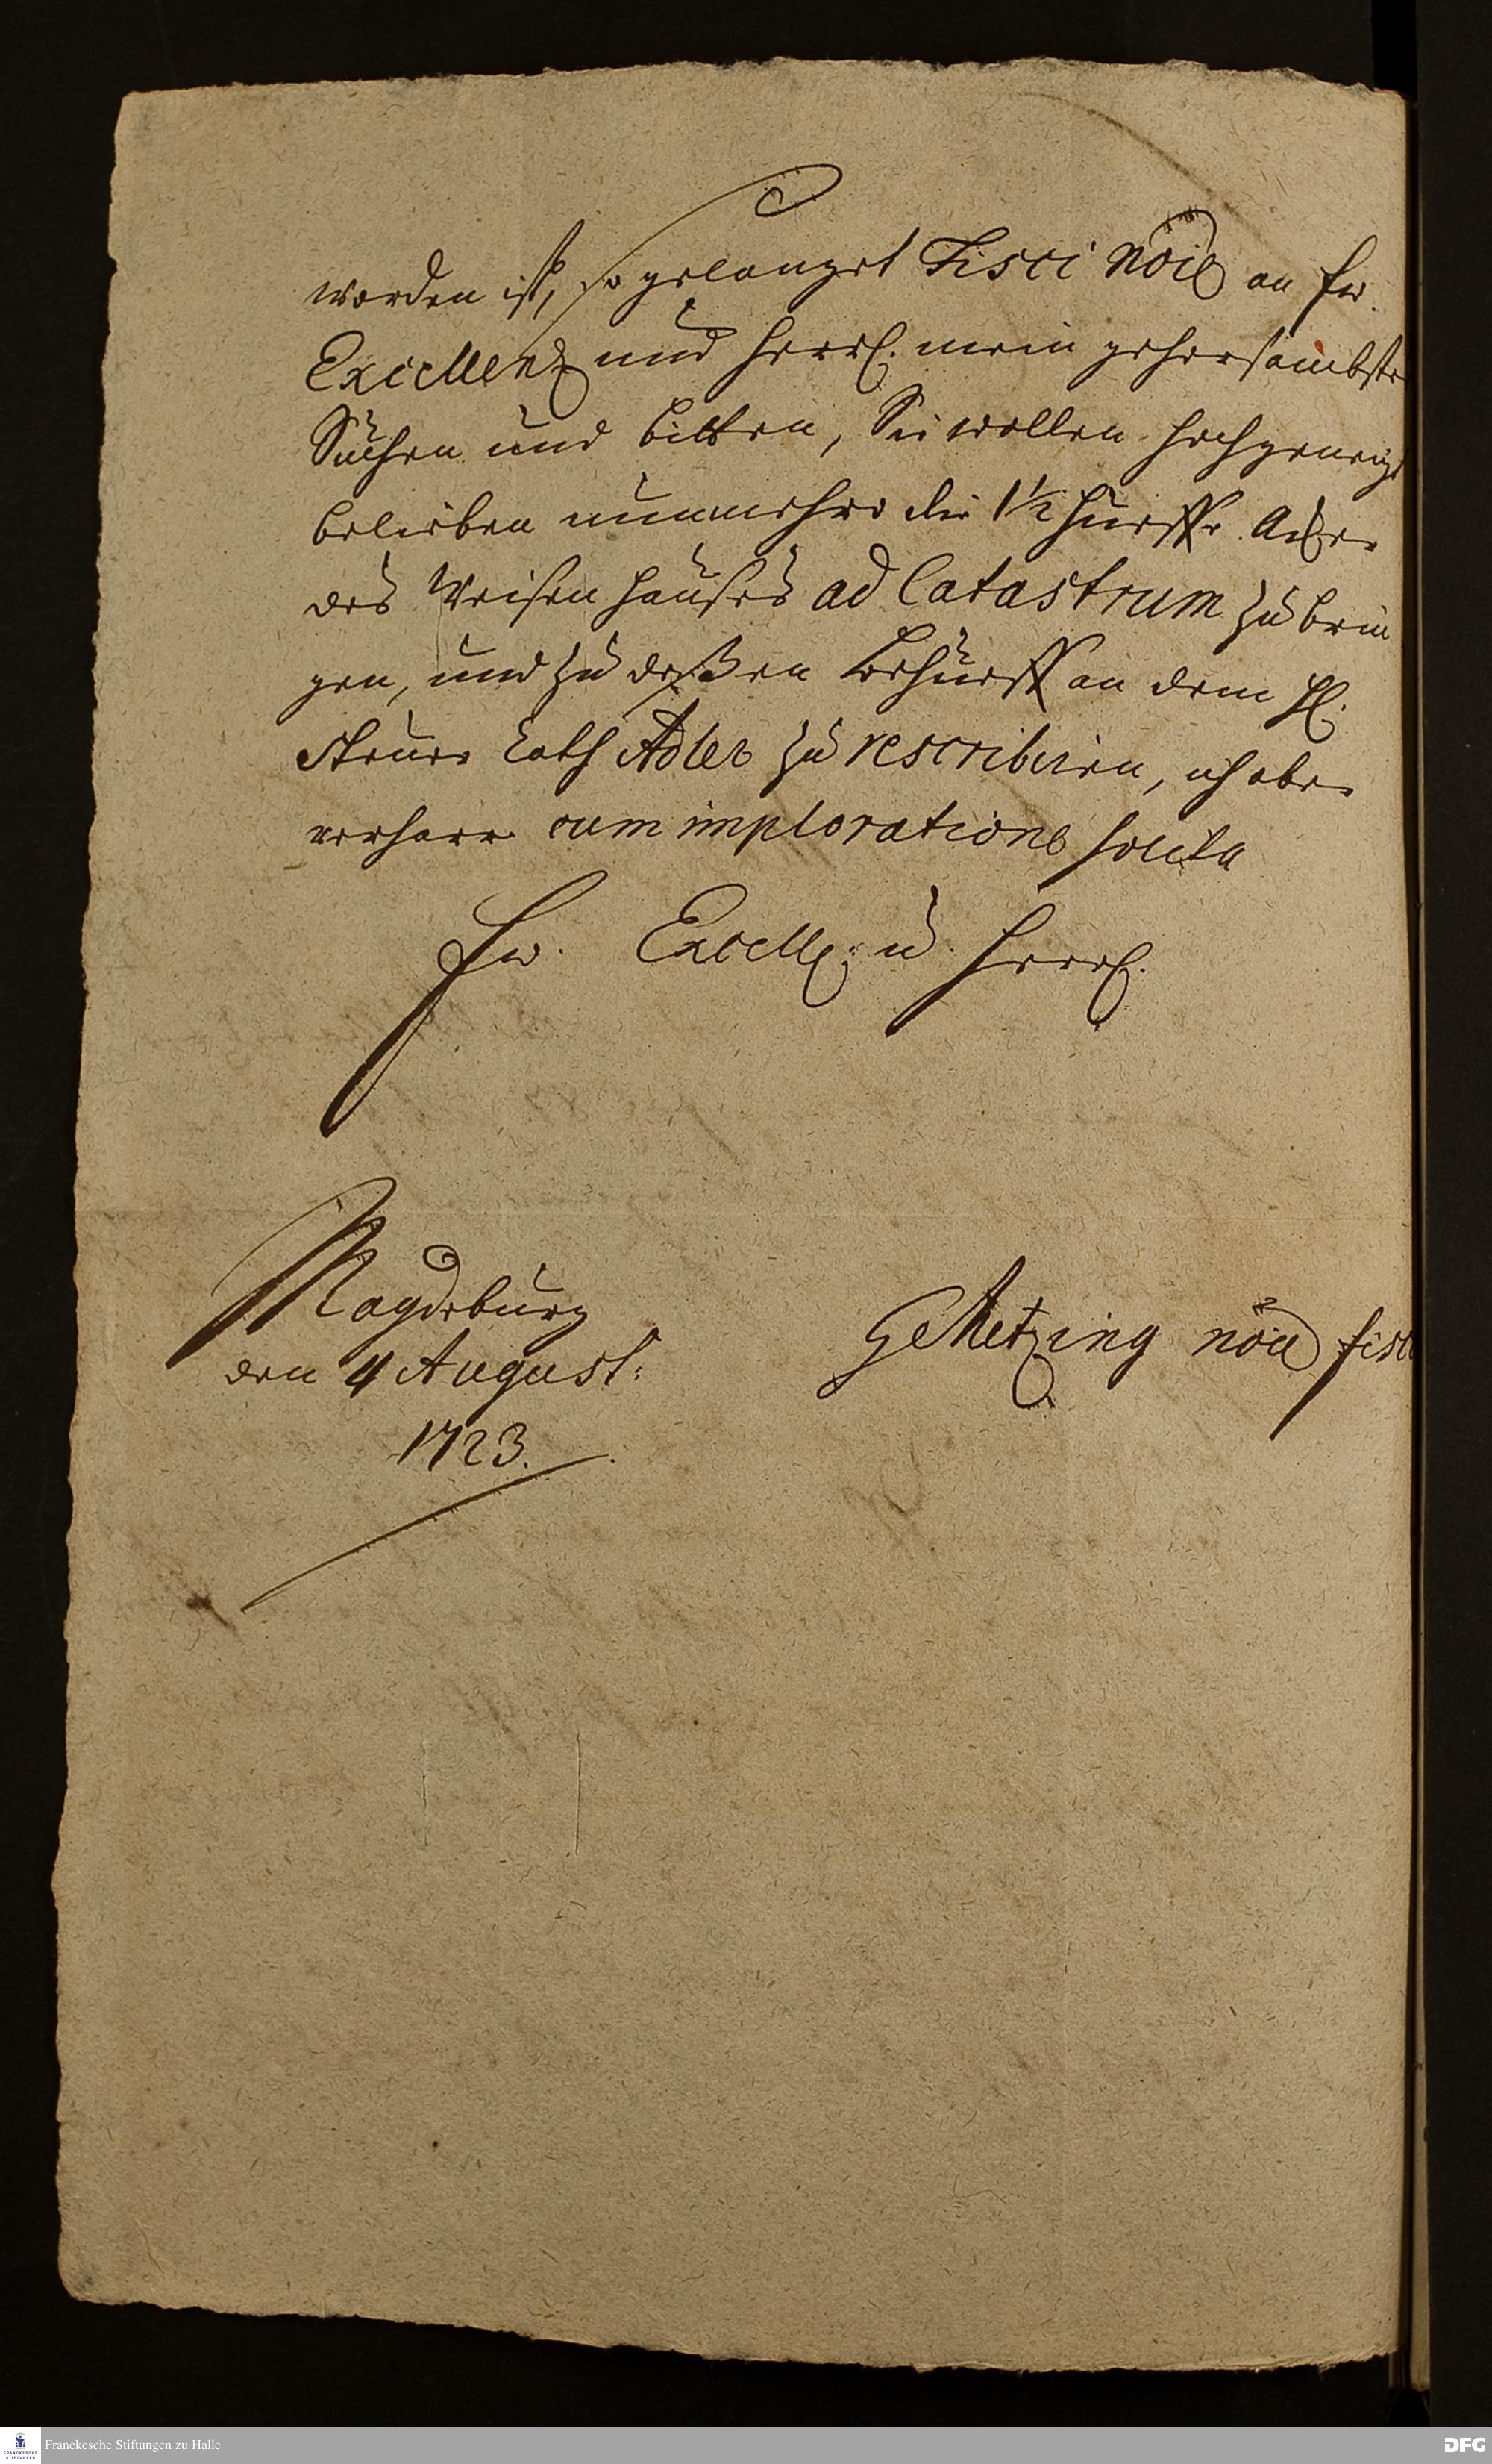 worden ist, so gelanget Fisci noie an Ew.
Excellentz und Herrl. mein gehorsambstes
Suchen und bitten, Sie wollen hochgeneigt
belieben nunmehro die 1½ Hueffe Acker
des Weisenhauses ad Catastrum zu brin
gen, und zu deßen Behueff an dem H.
Steuer Rath Adler zu rescribiren, ich aber
verharre cum imploratione solita
Ew. Excell. u. Herrl.
Magdeburg
den 4 August:
1723.
noie fisci
Franckesche Stiftungen zu Halle
FRANCKESCHE STIFTUNGEN
DFG